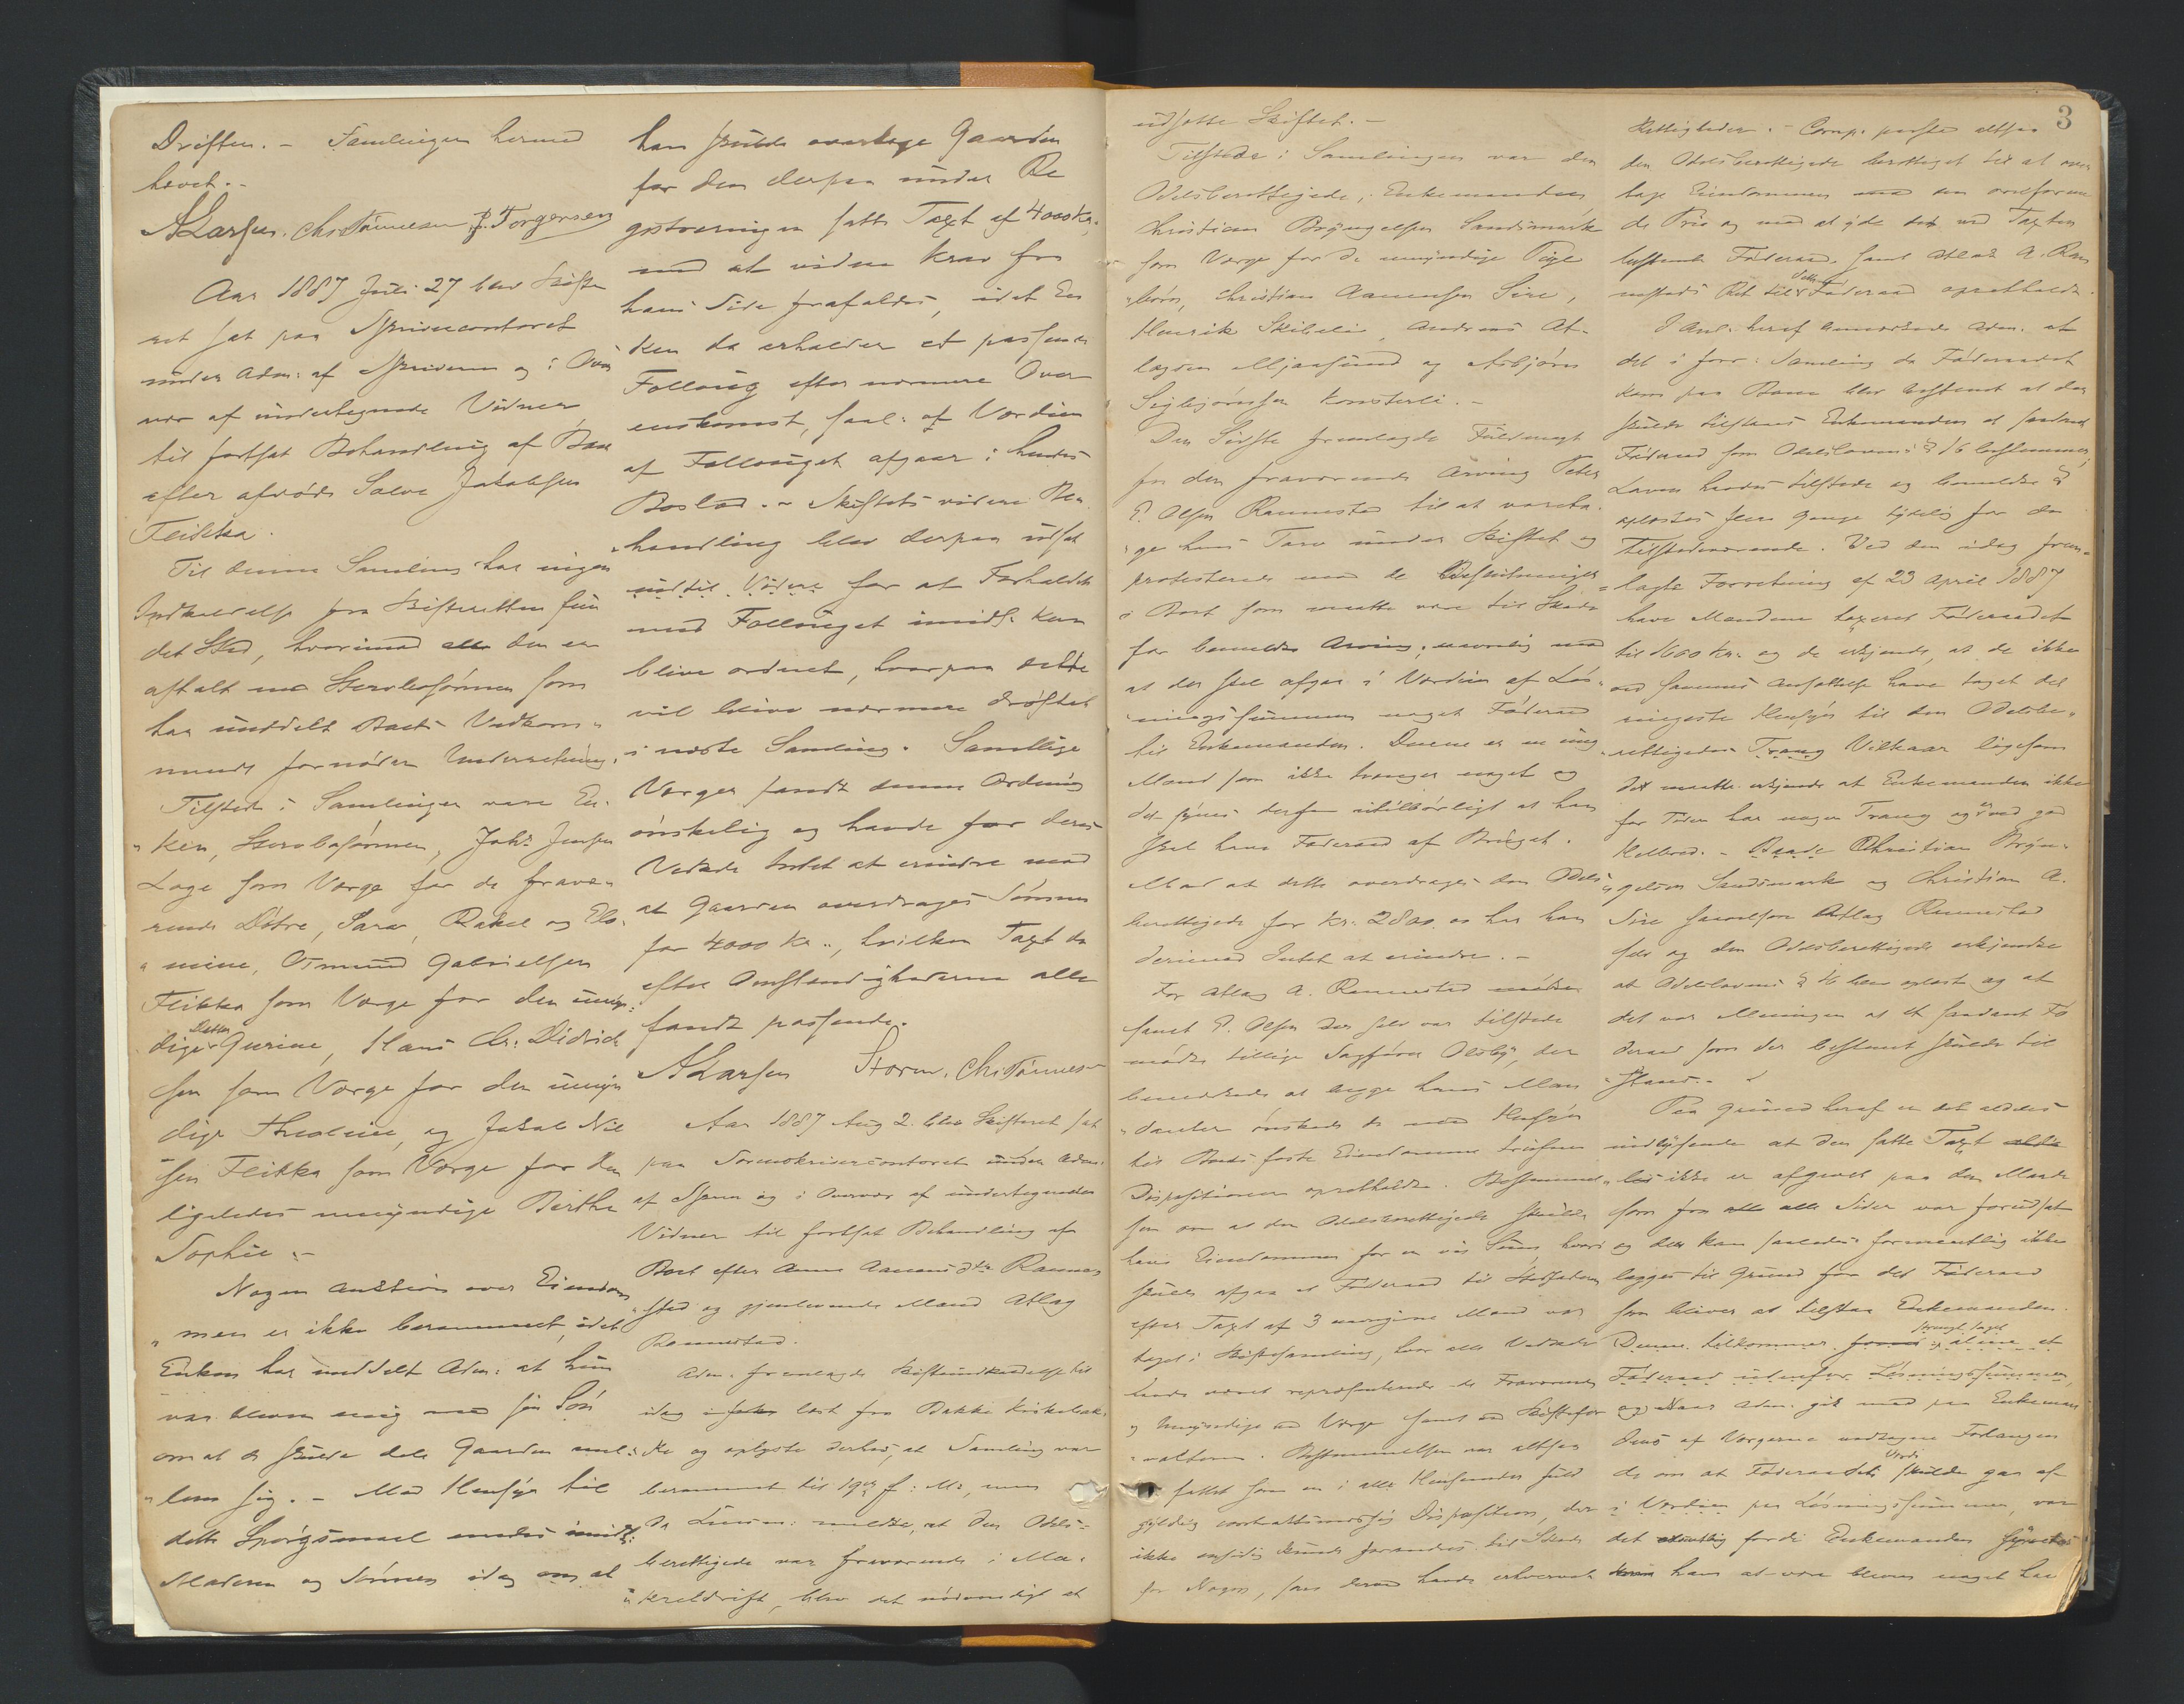 Driften. – Samlingen hermed
hævet. –
ALarsen. Chr Tønnesen J. Torgersen
Aar 1887 Juli 27 blev Skifte
ret sat paa Skrivercontoret
under Adm: af Skriveren og i Over
vær af undertegnede Vidner
til fortsat Behandling af Boet
efter afdøde Salve Jakobsen
Fleikka.
Til denne Samling har ingen
Indkaldelse fra Skifteretten fun
det Sted, hvorimod den er
aftalt med Stervbosønnen som
har meddelt Boets Vedkom-
mende fornøden Underretning.
Tilstede i Samlingen vare En-
ken, Stervbosønnen, Jak: Jensen
Loge som Værge for de fravæ-
rende Døtre, Sara, Rakel og Elo-
mine, Osmund Gabrielsen
Fleikka som Værge for den umyn-
dige Datter Gurine, Hans Chr. Didrik
sen som Værge for den umyn
dige Theoline, og Jakob Nil
sen Fleikka som Værge for den
ligeledes umyndige Birthe
Sophie. –
Nogen Auktion over Eiendom
men er ikke berammet, idet
Enken har meddelt Adm: at hun
var bleven enig med sin Søn
om at de skulde dele Gaarden mel-
lem sig. – Med Hensyn til
dette Spørgsmaal enedes imidl:
Moderen og Sønnen idag om at
han skulde overtage Gaarden
for den derpaa under Re
gistreringen satte Taxt af 4000 Kr.,
med at videre Krav fra
hans Side frafaldes, idet En
ken da erholder et passende
Follaug efter nærmere Over
enskomst, saal: at Værdien
af Follauget afgaar i hendes
Boslod. – Skiftets videre Be
handling blev derpaa udsat
indtil Videre for at Forholdet
med Follauget imidl. kan
blive ordnet, hvorpaa dette
vil blive nærmere drøftet
i næste Samling. Samtlige
Værger fandt denne Ordning
ønskelig og havde for deres
Vedkde Intet at erindre mod
at Gaarden overdrages Sønnen
for 4000 Kr., hvilken Taxt de
efter Omstændighederne alle
fandt passende.
ALarsen Storm. Chr Tønnesen
Aar 1887 Aug 2. blev Skifteret sat
paa Sorenskrivercontoret under Adm:
af Skrin og i Overvær af undertegnede
Vidner til fortsat Behandling af
Boet efter Anne Aanensdtr Rannes
stad og gjenlevende Mand Atlag
Rannestad.
Adm. fremlagde Skifteindkaldelse til
idag læst fra Bakke Kirkebak-
ke og oplyste derhos, at Samling var
berammet til 19de f: M:, men
da meldte, at den Odels-
berettigede var fraværende i Ma-
kreldrift, blev det nødvendigt at
udsætte Skiftet. –
Tilstede i Samlingen var den
Odelsberettigede, Enkemanden
Christian Bryngelsen Sandsmark
som Værge for de umyndige Pige
børn, Christian Aanensen Sire,
Henrik Skibeli, Andreas At-
lagsen Mjaasund og Asbjørn
Sigbjørnsen Konsterli. –
Den Sidste fremlagde Fuldmagt
fra den fraværende Arving Peter
E. Olsen Rannestad til at vareta-
ge hans Tarv under Skiftet og
protesterede mod de Beslutninger
i Boet som maatte være til Skade
for bemeldte Arving, navnlig med
at der skal afgaa i Værdien af Løs-
ningssummen noget Føderaad
til Enkemanden. Denne er en ung
Mand som ikke trænger noget og
det synes derfor utilbørligt at han
skal have Føderaad af Bruget.
Mod at dette overdrages den Odels-
berettigede for Kr. 2800 har han
derimod Intet at erindre. –
For Atlag A. Rannestad
samt E. Olsen der selv var tilstede
mødte tillige Sagfører Olsby, der
bemærkede at begge hans Man
danter ønskede de med Hensyn
til Boets faste Eiendomme trufne
Dispositioner opretholdte. Bestemmel-
sen om at den Odelsberettigede skulde
have Eiendommen for en vis Sum hvori
skulde afgaa et Føderaad til
efter Taxt af 3 uvillige Mænd var
taget i Skiftesamling, hvor alle Vedkde
havde været repræsenterede de Fraværende
og Umyndige ved Værge samt ved Skiftefor
valteren. Bestemmelsen var altsaa
fattet som en i alle Henseender fuld
gyldig contraktmæssig Disposition, der
ikke ensidig kunde forandres til Skade
for Nogen, som derved havde erhvervet
3
Rettigheder. – Comp. paastod altsaa
den Odelsberettigede berettiget til at over
tage Eiendommen ovenforne
de Pris og med at yde det ved Taxten
bestemte Føderaad samt Atlak A. Ran
nestads Ret til dette Føderaad opretholdt.
I Anl. heraf bemærkede Adm. at
det i forr. Samling da Føderaadet
kom paa Bane blev bestemt at der
skulde tilstaaes Enkemanden et saadant
Føderaad som Odelslovens § 16 bestemmer,
Loven havdes tilstede og bemeldte §
oplæstes flere Gange tydelig for de
Tilstedeværende. Ved den idag frem-
lagte Forretning af 23 April 1887
have Mændene taxeret Føderaadet
til 1600 Kr. og de erkjende, at de ikke
ved sammes Ansættelse have taget det
ringeste Hensyn til den Odelsbe-
rettigedes Trang Vilkaar ligesom
det maatte erkjendes at Enkemanden ikke
for Tiden har nogen Trang og er ved god
Helbred. – Baade Christian Bryn-
gelsen Sandsmark og Christian A.
Sire saavelsom Atlag Rannestad
selv og den Odelsberettigede erkjendte
at Odelslovens § 16 blev oplæst og at
det var Meningen at et saadant Fø
deraad som der bestemt skulde til
staaes. –
Paa Grund heraf er det aldeles
indlysende at den satte Taxt
ikke er afgivet paa den Maade
som fra alle Sider var forudsat
og den kan saaledes formentlig ikke
lægges til Grund for det Føderaad
som bliver at tilstaa Enkemanden.
Denne tilkommer strengt taget alene et
Føderaad udenfor Løsningssummen,
og naar Adm. gik med paa Enkeman
dens af Værgerne vedtagne Forlangen
de om at Føderaadets Værdi skulde gaa af
i Værdien paa Løsningssummen, var
det fordi Enkemanden syntes
ham at være bleven noget haa